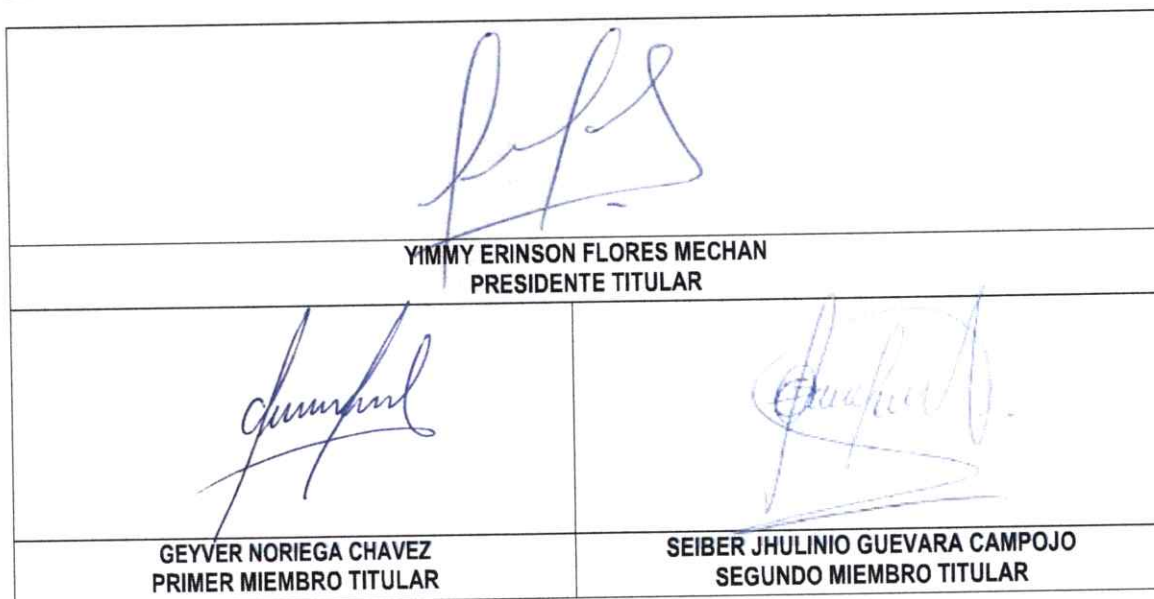 YIMMY ERINSON FLORES MECHAN
PRESIDENTE TITULAR
GEYVER NORIEGA CHAVEZ
PRIMER MIEMBRO TITULAR
SEIBER JHULINIO GUEVARA CAMPOJO
SEGUNDO MIEMBRO TITULAR